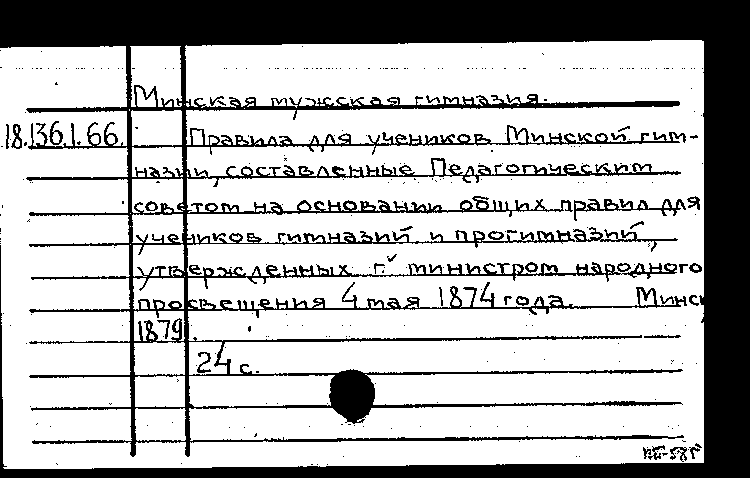 Минская мужская гимназия.
18.136.1.66. Правила для учеников Минской гим-
назии, составленные Педагогическим
советом на основании общих правил для
учеников гимназий и прогимназий,
утвержденных г. министром народного
просвещения 4 мая 1874 года. Минск,
1879.
24 с.